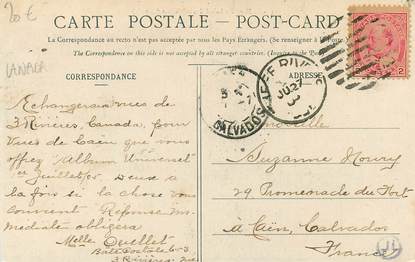 20 €
CANADA
CARTE POSTALE — POST-CARD
La Correspondance au recto n'est pas acceptée par tous les Pays Etrangers. (Se renseigner à la Poste)
The Correspondence on this side is not accepted by all stranger countries.
CORRESPONDANCE
Echangerais vues de
3 Rivières, Canada, pour
Vues de Caen que vous
offrez "Album Universel"
Juillet 05. Deux à
la fois si la chose vous
convient Réponse im-
médiate obligera
Melle Ouellet
Boite Postale 603
3 Rivières, Que
CALVADOS
RIVI
JU 27
2
Suzanne Houry
29 Promenade du Fort
à Caën, Calvados
France